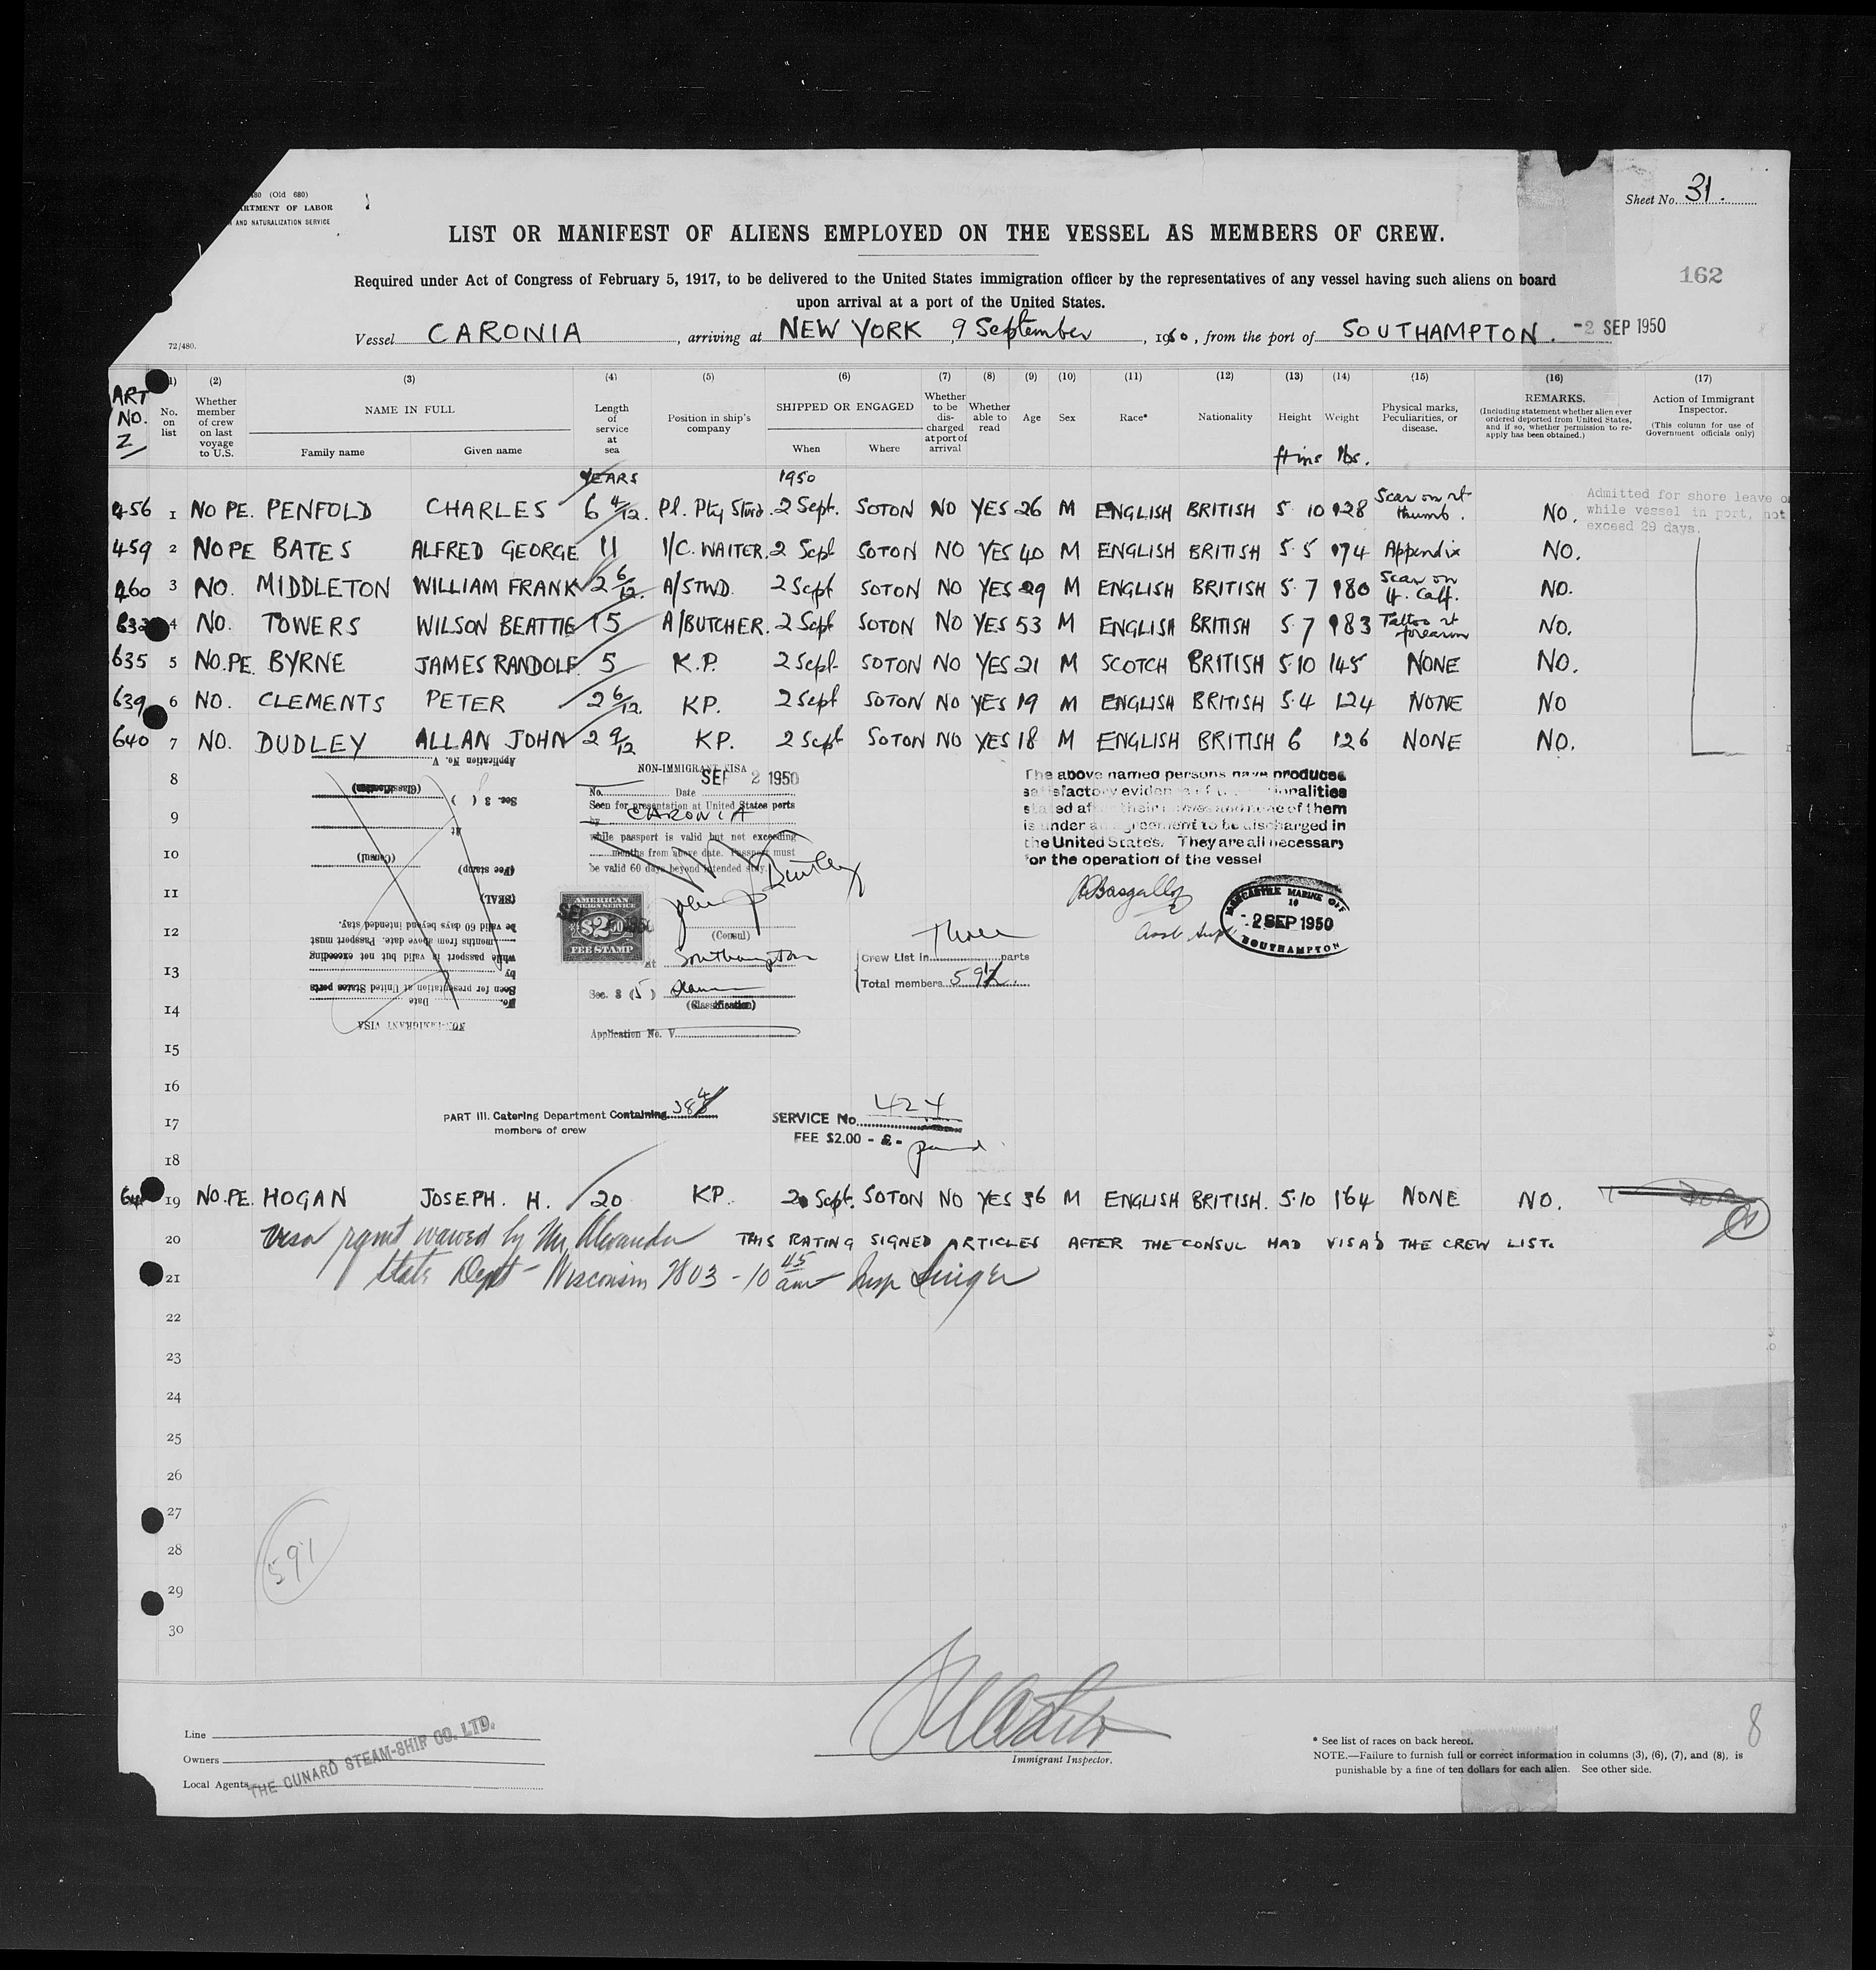 480 (Old 680)
ARTMENT OF LABOR
AND NATURALIZATION SERVICE
Sheet No. 31.
LIST OR MANIFEST OF ALIENS EMPLOYED ON THE VESSEL AS MEMBERS OF CREW.
162
Required under Act of Congress of February 5, 1917, to be delivered to the United States immigration officer by the representatives of any vessel having such aliens on board
upon arrival at a port of the United States.
72/480.
Vessel CARONIA, arriving at NEW YORK 9 September, 1950, from the port of SOUTHAMPTON. -2 SEP 1950
ART NO. 2
(1) No. on list
(2) Whether member of crew on last voyage to U.S.
(3) NAME IN FULL
Family name Given name
(4) Length of service at sea
(5) Position in ship's company
(6) SHIPPED OR ENGAGED
When Where
(7) Whether to be discharged at port of arrival
(8) Whether able to read
(9) Age
(10) Sex
(11) Race*
(12) Nationality
(13) Height ft ins
(14) Weight lbs.
(15) Physical marks, Peculiarities, or disease.
(16) REMARKS.
(Including statement whether alien ever ordered deported from United States, and if so, whether permission to re-apply has been obtained.)
(17) Action of Immigrant Inspector.
(This column for use of Government officials only)
YEARS 1950
456 1 NO PE. PENFOLD CHARLES 6 4/12. Pl. Pty Stwd. 2 Sept. SOTON NO YES 26 M ENGLISH BRITISH 5 10 128 Scar on rt thumb. NO.
Admitted for shore leave o
while vessel in port, not
exceed 29 days.
459 2 NO PE BATES ALFRED GEORGE 11 1/C. WAITER. 2 Sept SOTON NO YES 40 M ENGLISH BRITISH 5.5 174 Appendix NO.
460 3 NO. MIDDLETON WILLIAM FRANK 2 6/12. A/STWD. 2 Sept SOTON NO YES 29 M ENGLISH BRITISH 5.7 180 Scar on lt. Calf. NO.
632 4 NO. TOWERS WILSON BEATTIE 15 A/BUTCHER. 2 Sept SOTON NO YES 53 M ENGLISH BRITISH 5.7 183 Tattoo rt forearm NO.
635 5 NO.PE. BYRNE JAMES RANDOLF 5 K.P. 2 Sept. SOTON NO YES 21 M SCOTCH BRITISH 5.10 145 NONE NO.
639 6 NO. CLEMENTS PETER 2 6/12. KP. 2 Sept SOTON NO YES 19 M ENGLISH BRITISH 5.4 124 NONE NO
640 7 NO. DUDLEY ALLAN JOHN 2 9/12 KP. 2 Sept SOTON NO YES 18 M ENGLISH BRITISH 6 126 NONE NO.
8
9
10
11
12
13
14
15
16
17
18
NON-IMMIGRANT VISA
No. Date
Seen for presentation at United States ports
by
while passport is valid but not exceeding
months from above date. Passport must
be valid 60 days beyond intended stay.
(SEAL)
(Fee stamp)
(Consul)
at
Sec. 3 ( )
(Classification)
Application No. V
NON-IMMIGRANT VISA
SEP 2 1950
No. Date
Seen for presentation at United States ports
by CARONIA
while passport is valid but not exceeding
months from above date. Passport must
be valid 60 days beyond intended stay.
AMERICAN
FOREIGN SERVICE
$2.00
FEE STAMP
(Consul)
at Southampton
Sec. 3 (5)
(Classification)
Application No. V
The above named persons have produced
satisfactory evidence of the nationalities
stated after their names and none of them
is under an agreement to be discharged in
the United States. They are all necessary
for the operation of the vessel
MERCANTILE MARINE OFF
-2 SEP 1950
SOUTHAMPTON
Crew List in Three parts
Total members 591
PART III. Catering Department Containing 384
members of crew
SERVICE No. 424
FEE $2.00
19 NO.PE. HOGAN JOSEPH. H. 20 KP. 2 Sept. SOTON NO YES 36 M ENGLISH BRITISH. 5.10 164 NONE NO.
20 Visa rqmt waived by Mr. Alexander THIS RATING SIGNED ARTICLES AFTER THE CONSUL HAD VISA'D THE CREW LIST.
21 State Dept - Wisconsin 7803 - 10 45 am Insp Singer
22
23
24
25
26
27
28
29
30
591
Line
Owners
Local Agents
THE CUNARD STEAM-SHIP CO. LTD.
Immigrant Inspector.
8
* See list of races on back hereof.
NOTE.—Failure to furnish full or correct information in columns (3), (6), (7), and (8), is
punishable by a fine of ten dollars for each alien. See other side.